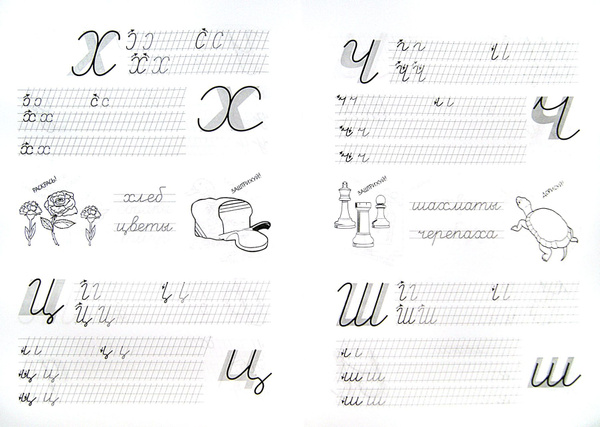 Х
Х Х
х х
х х
Х
РАСКРАСЬ!
хлеб
цветы
ЗАШТРИХУЙ!
Ц
Ц Ц
ц ц
ц ц
Ц
Ч
Ч Ч
ч ч
ч ч
ч ч
Ч
ЗАШТРИХУЙ!
шахматы
черепаха
ДОРИСУЙ!
Ш
Ш Ш
ш ш
ш ш
Ш